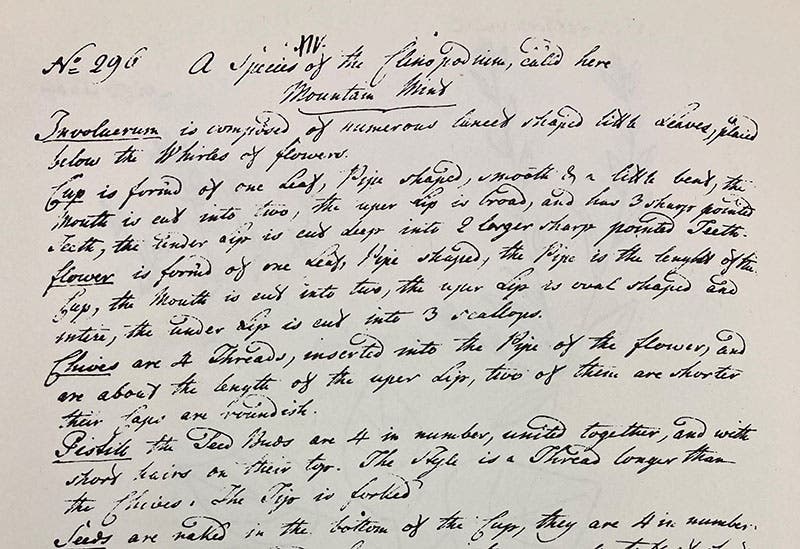 No 296 A Species of the Clinopodium, call'd here
Mountain Mint
Involucrum is composed of numerous lancet shaped little Leaves, placed
below the Whirles of flowers.
Cup is formd of one Leaf, Pipe shaped, smooth & a little bent, the
Mouth is cut into two, the uper Lip is broad, and has 3 sharp pointed
Teeth, the under Lip is cut deep into 2 larger sharp pointed Teeth.
flower is formd of one Leaf, Pipe shaped, the Pipe is the lenght of the
Cup, the Mouth is cut into two, the uper Lip is oval shaped and
intire, the under Lip is cut into 3 scallops.
Chives are 4 Threads, inserted into the Pipe of the flower, and
are about the length of the uper Lip, two of them are shorter
their Caps are roundish.
Pistill the Seed Buds are 4 in number, united together, and with
short hairs on their top. The Style is a Thread longer than
the Chives. The Tip is forked
Seeds are naked in the bottom of the Cup, they are 4 in number.